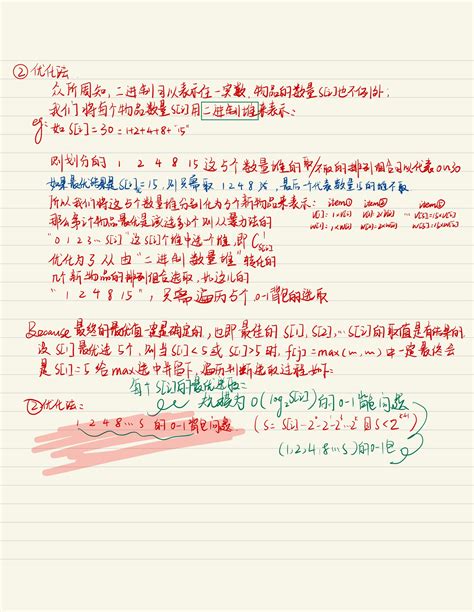 ② 优化法
众所周知，二进制可以表示任一实数，物品的数量S[i]也不例外；
我们将每个物品数量S[i]用二进制堆来表示：
eg: 如 S[i]=30 = 1+2+4+8+"15"
则划分的 1 2 4 8 15 这5个数量堆的取/不取的排列组合可以代表0~30
如果最优结果是S[i]=15, 则只需取 1 2 4 8, 最后一个代表数量15的堆不取
所以我们将这5个数量堆分别化为5个新物品来表示： item① item② item⑤
那么第i个物品最优是该选多少个则从暴力法的 V[1]: 1×V[i] V[2]: 2×V[i] … V[5]: 15×V[i]
"0 1 2 3 … S[i]" 这S[i]个堆中选一个堆, 即 C W[1]: 1×W[i] W[2]: 2×W[i] W[5]: 15×W[i]
优化为了从由"二进制数量堆"转化的
几个新物品的排列组合选取, 比这儿的
"1 2 4 8 15", 只需遍历5个 0-1背包的选取
Because 最终的最优值一定是确定的, 也即最佳的 S[1], S[2], … S[i]的取值是有结果的,
设S[i]最优选5个, 则当S[i]<5或S[i]>5时, f[j]=max(m, m)中一定最终会
是S[i]=5给max选中并留下, 遍历判断选取过程如下:
每个S[i]的最优选取：
②优化法： 规模为 O(log₂S[i])的0-1背包问题
1, 2 4 8 … S 的0-1背包问题 (S=S[i]-2⁰-2¹-2²…2ᵏ 且S<2ᵏ⁺¹)
(1, 2, 4, 8 … S)的0-1包